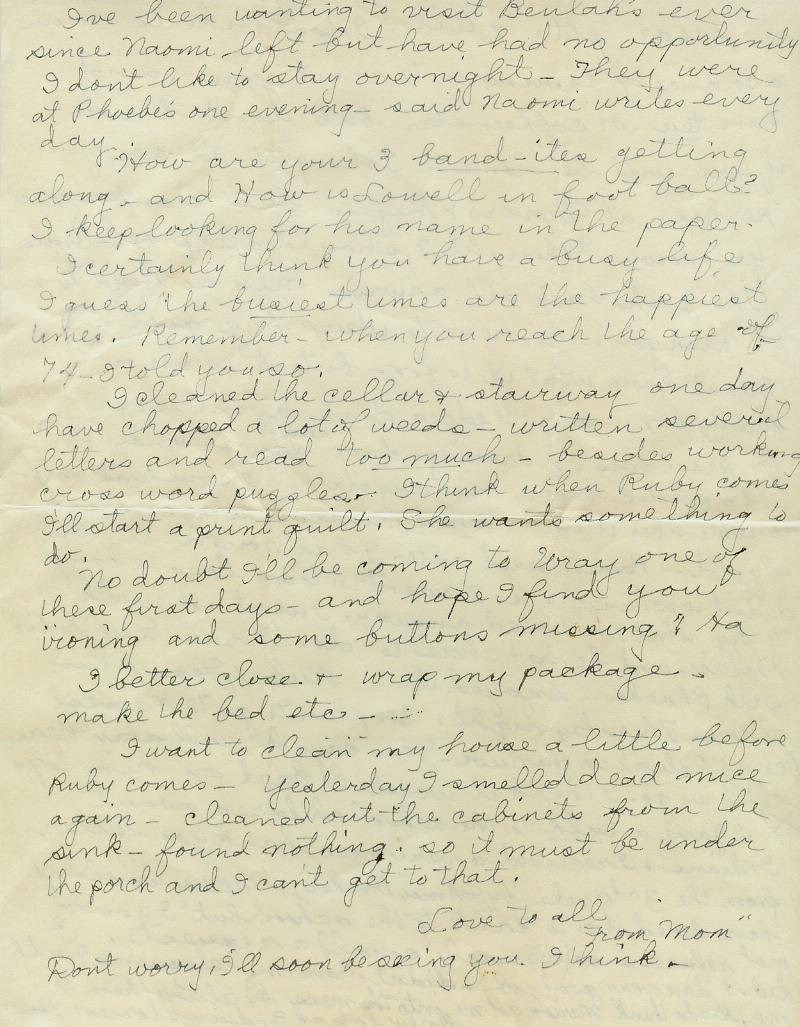 I've been wanting to visit Beulah's ever
since Naomi left but have had no opportunity
I dont like to stay overnight - They were
at Phoebe's one evening - said Naomi writes every
day.
How are your 3 band-ites getting
along - and How is Lowell in foot ball?
I keep looking for his name in the paper.
I certainly think you have a busy life
I guess the busiest times are the happiest
times. Remember - when you reach the age of
74 - I told you so.
I cleaned the cellar & stairway one day
have chopped a lot of weeds - written several
letters and read too much - besides working
cross word puzzles - I think when Ruby comes
I'll start a print quilt. She wants something to
do.
No doubt I'll be coming to Wray one of
these first days - and hope I find you
ironing and some buttons missing? Ha
I better close & wrap my package -
make the bed etc -
I want to clean my house a little before
Ruby comes - Yesterday I smelled dead mice
again - cleaned out the cabinets from the
sink - found nothing. so it must be under
the porch and I can't get to that.
Love to all
From "Mom"
Dont worry, I'll soon be seeing you. I think -